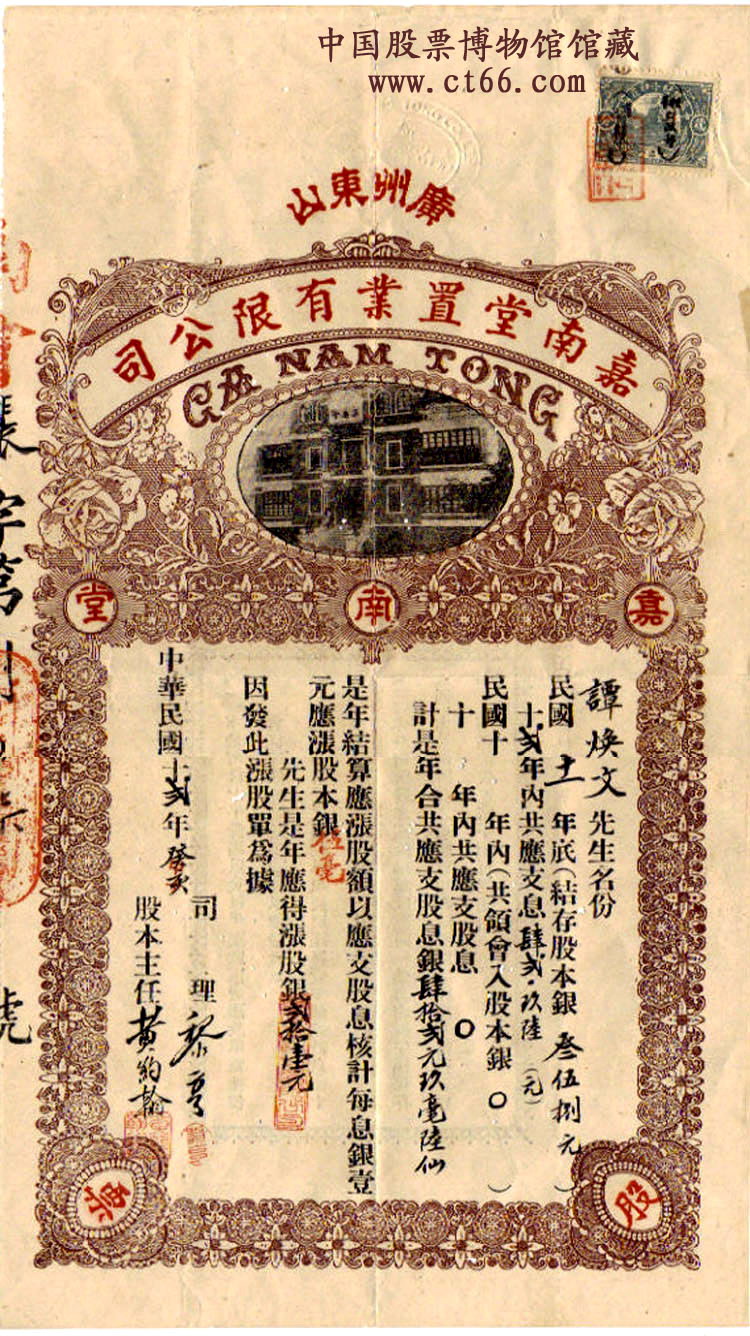 中国股票博物馆馆藏
www.ct66.com
廣州東山
嘉南堂置業有限公司
GA NAM TONG
嘉
南
堂
譚煥文先生名份
民國十一年底(結存股本銀叁伍捌元)
十弍年內共應支息肆弍.玖陸(元)
民國十 年內(共領會入股本銀〇)
十 年內共應支股息〇
計是年合共應支股息銀肆拾弍元玖毫陸仙
是年結算應漲股額以應支股息核計每息銀壹
元應漲股本銀伍毫
先生是年應得漲股銀弍拾壹元
因發此漲股單為據
中華民國十弍年癸亥
司理黎亨
股本主任黃約翰
字第
號
股
票